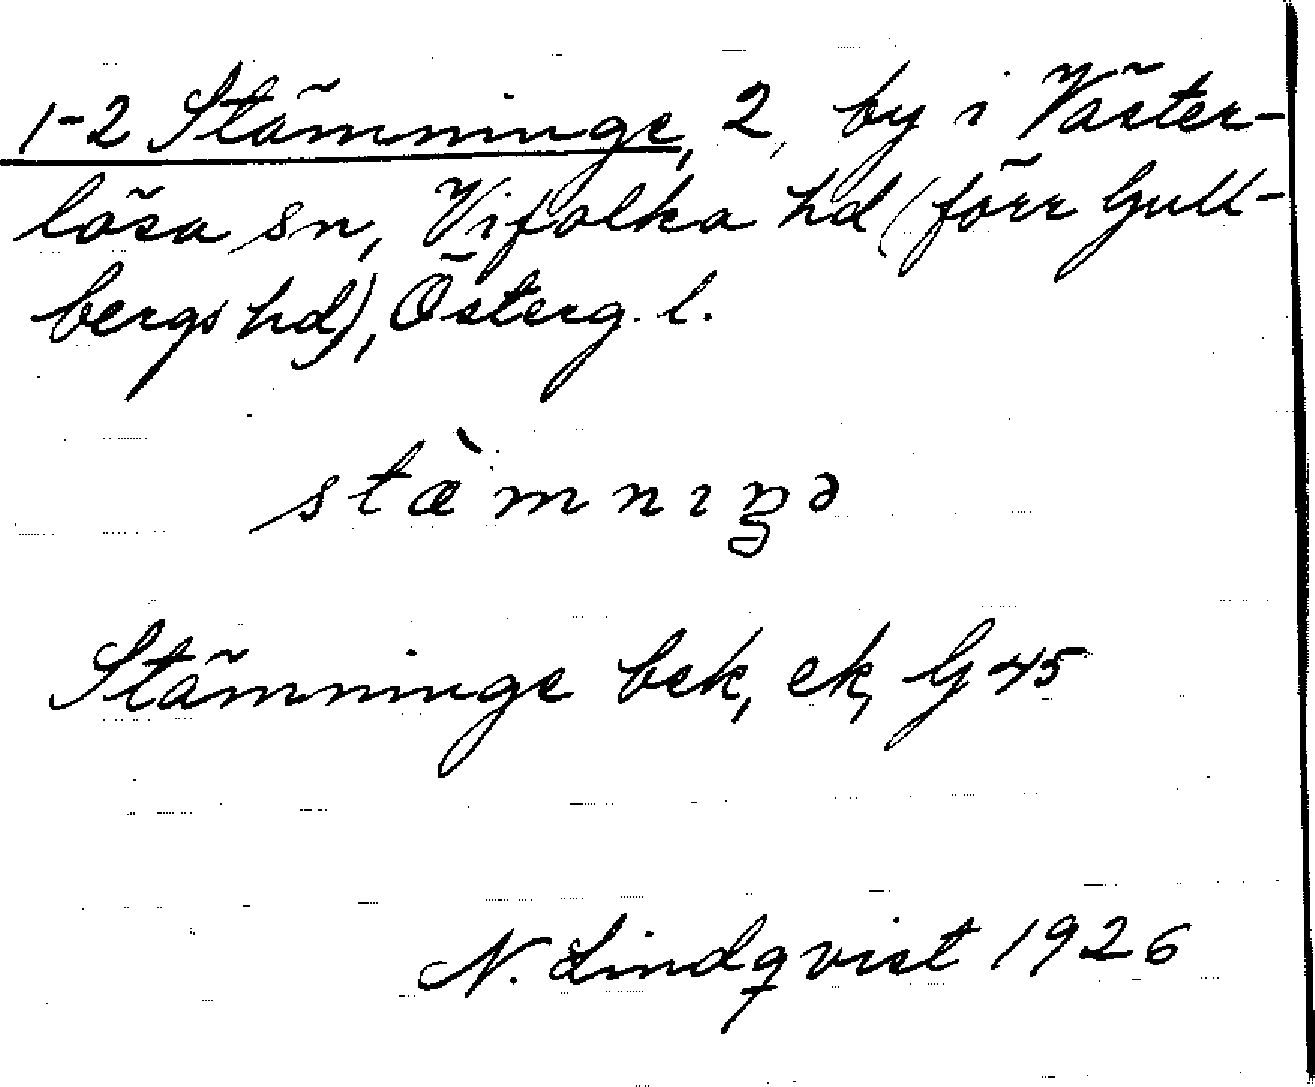 1-2 Stämninge, 2, by i Väster-
lösa sn, Vifolka hd (förr Gull-
bergs hd), Österg. l.
stæ̀mnıŋə
Stämninge bek, ek, G 45
N. Lindqvist 1926